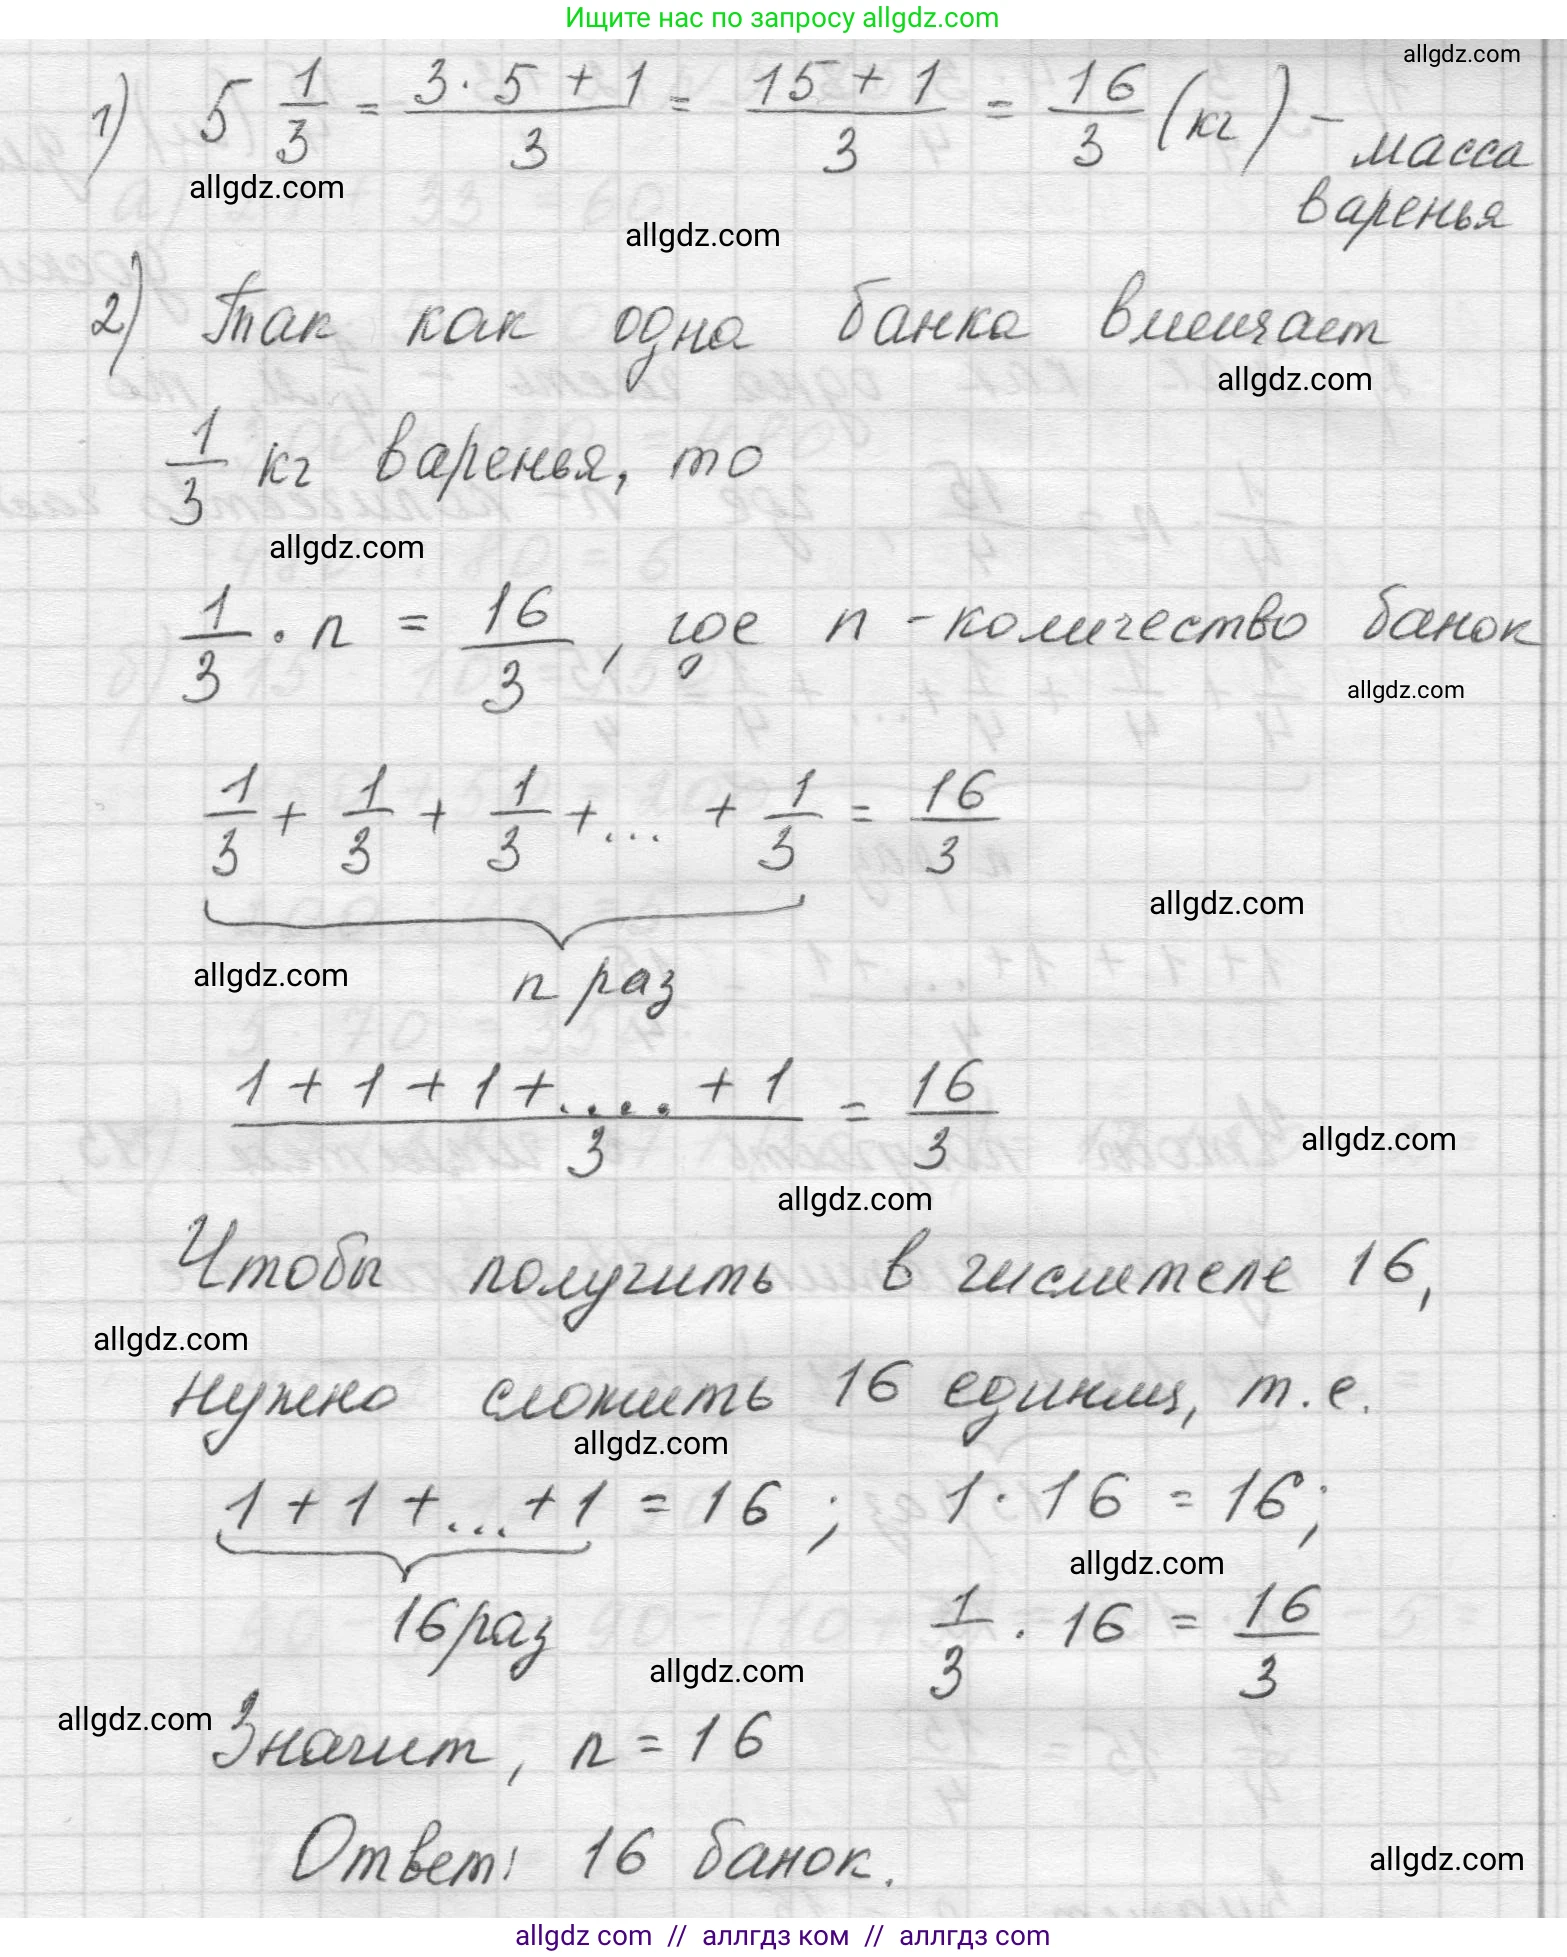 Ищите нас по запросу allgdz.com
allgdz.com
1) 5 1/3 = (3·5+1)/3 = (15+1)/3 = 16/3 (кг) - масса
варенья
allgdz.com
allgdz.com
2) Так как одна банка вмещает
allgdz.com
1/3 кг варенья, то
allgdz.com
1/3 · n = 16/3, где n - количество банок
allgdz.com
1/3 + 1/3 + 1/3 + ... + 1/3 = 16/3
allgdz.com
allgdz.com
n раз
(1+1+1+....+1)/3 = 16/3
allgdz.com
allgdz.com
Чтобы получить в числителе 16,
allgdz.com
нужно сложить 16 единиц, т.е.
allgdz.com
1+1+...+1 = 16; 1·16 = 16;
allgdz.com
16 раз 1/3 · 16 = 16/3
allgdz.com
allgdz.com
Значит, n = 16
Ответ: 16 банок.
allgdz.com
allgdz com // аллгдз ком // аллгдз com